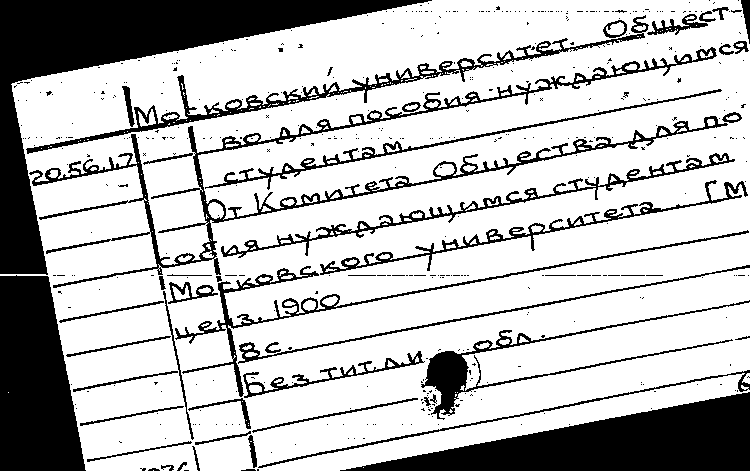 Московский университет. Общест-
во для пособия нуждающимся
студентам.
20.56.17
От Комитета Общества для по
собия нуждающимся студентам
Московского университета. [М
ценз. 1900
8с.
Без тит.л.и обл.